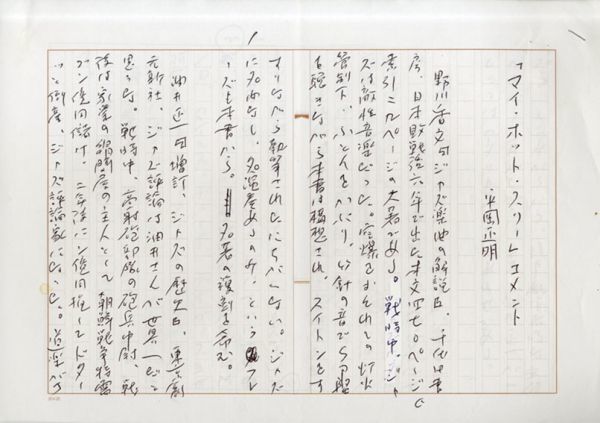 「マイ・ホット・スリー」コメント
平岡正明
野川香文『ジャズ楽曲の解説』、千代田書
房、日本敗戦後六年で出た本文四七〇ページと
索引二八ページの大著がある。戦時中、ジャ
ズは敵性音楽だった。空爆をおそれての灯火
管制下、ふとんをかぶり、竹針の音でSP盤
を聴きながら本書は構想され、スイトンをす
すりながら執筆されたにちがいない。ジャズ
に名曲なし、名演奏あるのみ、というフレ
ーズも本書から。名著の複刻を希む。
油井正一『増訂・ジャズの歴史』、東京創
元新社、ジャズ評論は油井さんが世界一だと
思った。戦時中、高射砲部隊の砲兵中尉、戦
後は家業の
屋の主人として朝鮮戦争特需
で
ン億円儲け、二年後にン億円損してドター
ッと倒産、ジャズ評論家になった。道楽が